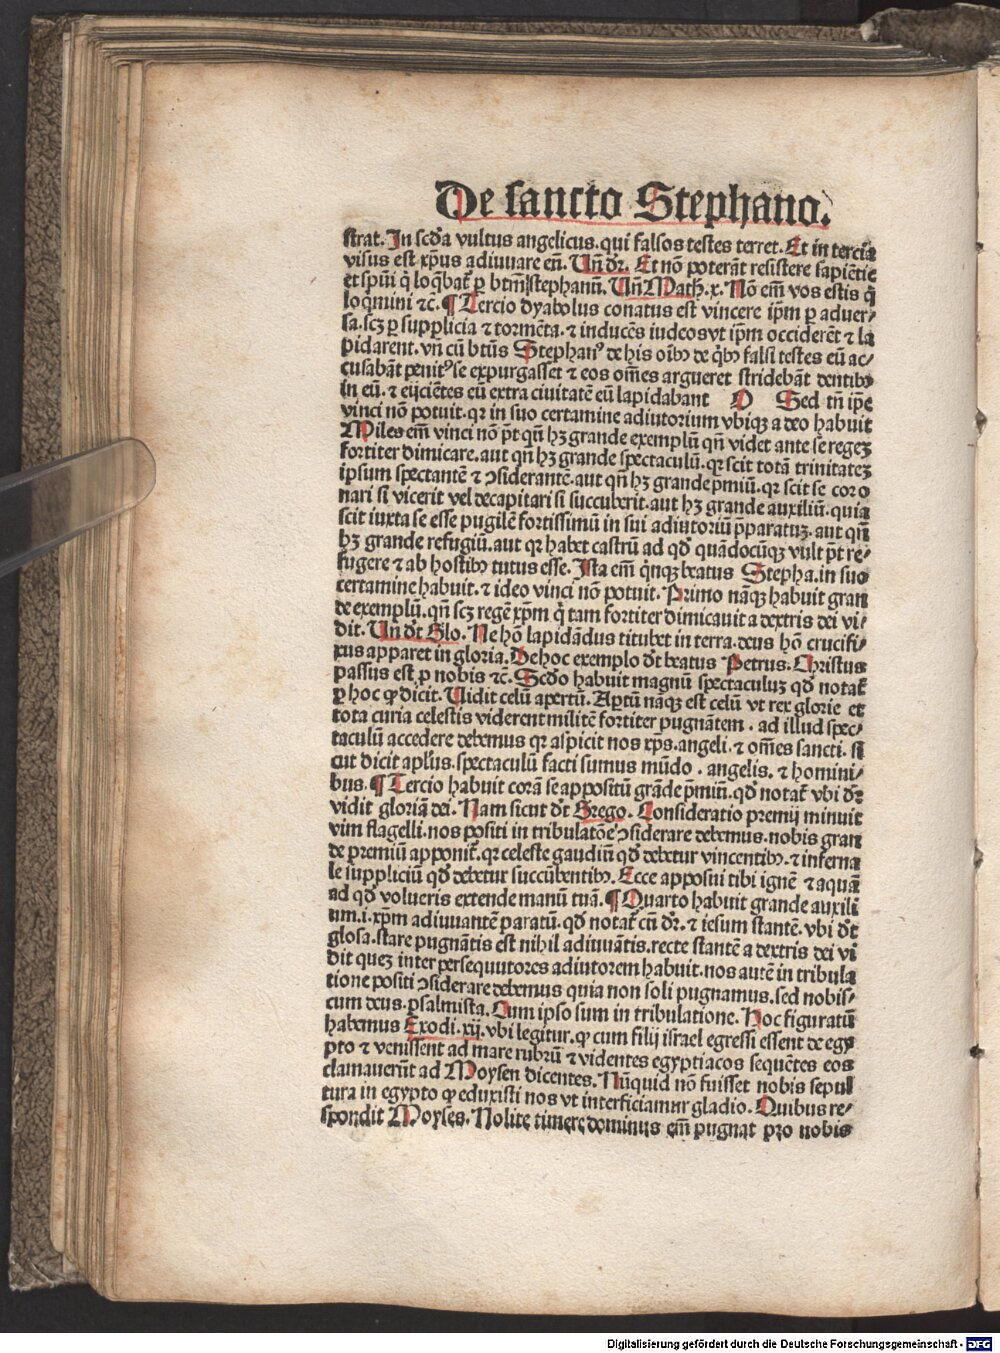 De sancto Stephano.
strat. In scḋa vultus angelicus. qui falsos testes terret. Et in tercia
visus est xp̄us adiuuare eū. Un̄ dr̄. Et nō poterāt resistere sapiētie
et spūi q̇ loq̄batᷣ ꝑ btm̄ stephanū. Un̄ Math. x. Nō em̄ vos estis q̇
loq̇mini ⁊c̄. ¶ Tercio dyabolus conatus est vincere ip̄m ꝑ aduer⸗
sa. scꝫ ꝑ supplicia ⁊ tormēta. ⁊ inducēs iudeos vt ip̄m occiderēt ⁊ la
pidarent. vn̄ cū btūs Stephanꝰ de his oībꝰ de q̇bꝰ falsi testes eū ac⸗
cusabāt penitꝰ se expurgasset ⁊ eos om̄es argueret stridebāt dentibꝰ
in eū. ⁊ eijciētes eū extra ciuitatē eū lapidabant O Sed tn̄ ip̄e
vinci nō potuit. qr in suo certamine adiutorium vbiqꝫ a deo habuit
Miles em̄ vinci nō pōt qn̄ hꝫ grande exemplū qn̄ videt ante se regeꝫ
fortiter dimicare. aut qn̄ hꝫ grande spectaculū. qr scit totā trinitateꝫ
ipsum spectantē ⁊ ↄsiderantē. aut qn̄ hꝫ grande p̄miū. qr scit se coro
nari si vicerit vel decapitari si succuberit. aut hꝫ grande auxiliū. quia
scit iuxta se esse pugilē fortissimū in sui adiutoriū p̄paratuꝫ. aut qn̄
hꝫ grande refugiū. aut qr habet castrū ad qd̄ quādocūqꝫ vult pōt re⸗
fugere ⁊ ab hostibꝰ tutus esse. Ista em̄ qn̄qꝫ beatus Stepha. in suo
certamine habuit. ⁊ ideo vinci nō potuit. Primo nāqꝫ habuit gran
de exemplū. qn̄ scꝫ regē xp̄m q̇ tam fortiter dimicauit a dextris dei vi⸗
dit. Un̄ dt̄ Glo. Ne hō lapidādus titubet in terra. deus hō crucifi⸗
xus apparet in gloria. De hoc exemplo dt̄ beatus Petrus. Christus
passus est ꝑ nobis ⁊c̄. Scḋo habuit magnū spectaculuꝫ qd̄ notatᷣ
ꝑ hoc ꝙ dicit. Uidit celū apertū. Aptū naqꝫ est celū vt rex glorie et
tota curia celestis viderent militē fortiter pugnātem. ad illud spec⸗
taculū accedere debemus qr aspicit nos xp̄s. angeli. ⁊ om̄es sancti. si
cut dicit aplus. spectaculū facti sumus mūdo. angelis. ⁊ homini⸗
bus. ¶ Tercio habuit corā se appositū grāde p̄miū. qd̄ notatᷣ vbi dr̄
vidit gloriā dei. Nam sicut dt̄ Grego. Consideratio premij minuit
vim flagelli. nos positi in tribulatōe ↄsiderare debemus. nobis gran
de premiū apponitᷣ. qr celeste gaudiū qd̄ debetur vincentibꝰ. ⁊ inferna
le suppliciū qd̄ debetur succūbentibꝰ. Ecce apposui tibi ignē ⁊ aquā
ad qd̄ volueris extende manū tuā. ¶ Quarto habuit grande auxili
um. i. xp̄m adiuuantē paratū. qd̄ notatᷣ cū dr̄. ⁊ iesum stantē. vbi dt̄
glosa. stare pugnātis est nihil adiuuātis. recte stantē a dextris dei vi
dit queꝫ inter persequutores adiutorem habuit. nos autē in tribula
tione positi ↄsiderare debemus quia non soli pugnamus. sed nobis⸗
cum deus. psalmista. Cum ipso sum in tribulatione. Hoc figuratū
habemus Exodi. xij. vbi legitur. ꝙ cum filij israel egressi essent de egy
pto ⁊ venissent ad mare rubrū ⁊ videntes egyptiacos sequētes eos
clamauerūt ad Moysen dicentes. Nūquid nō fuisset nobis sepul
tura in egypto ꝙ eduxisti nos vt interficiamur gladio. Quibus re⸗
spondit Moyses. Nolite timere dominus em̄ pugnat pro nobis
Digitalisierung gefördert durch die Deutsche Forschungsgemeinschaft - DFG